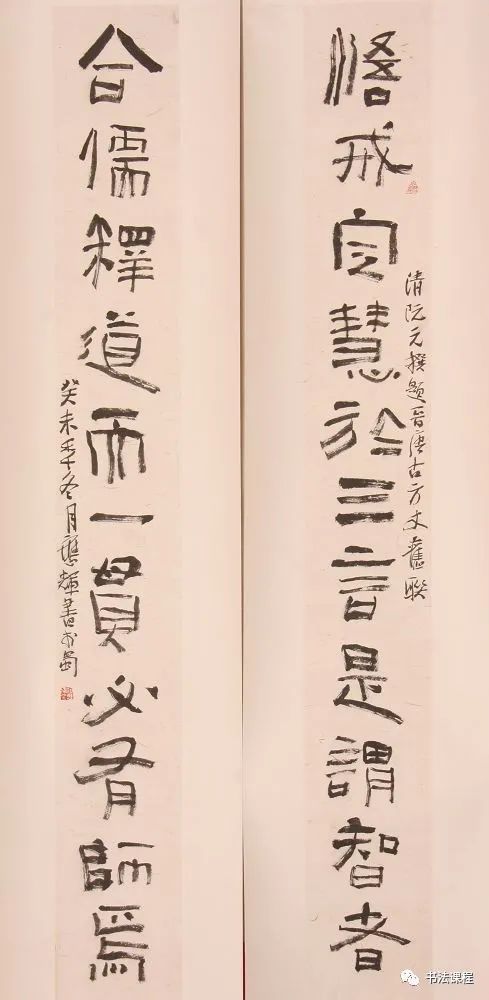 悟戒定慧於三言是謂智者
清阮元撰題晉唐古方丈舊聯
合儒釋道而一貫必有師焉
癸未年冬月應輝書於蜀
书法课程